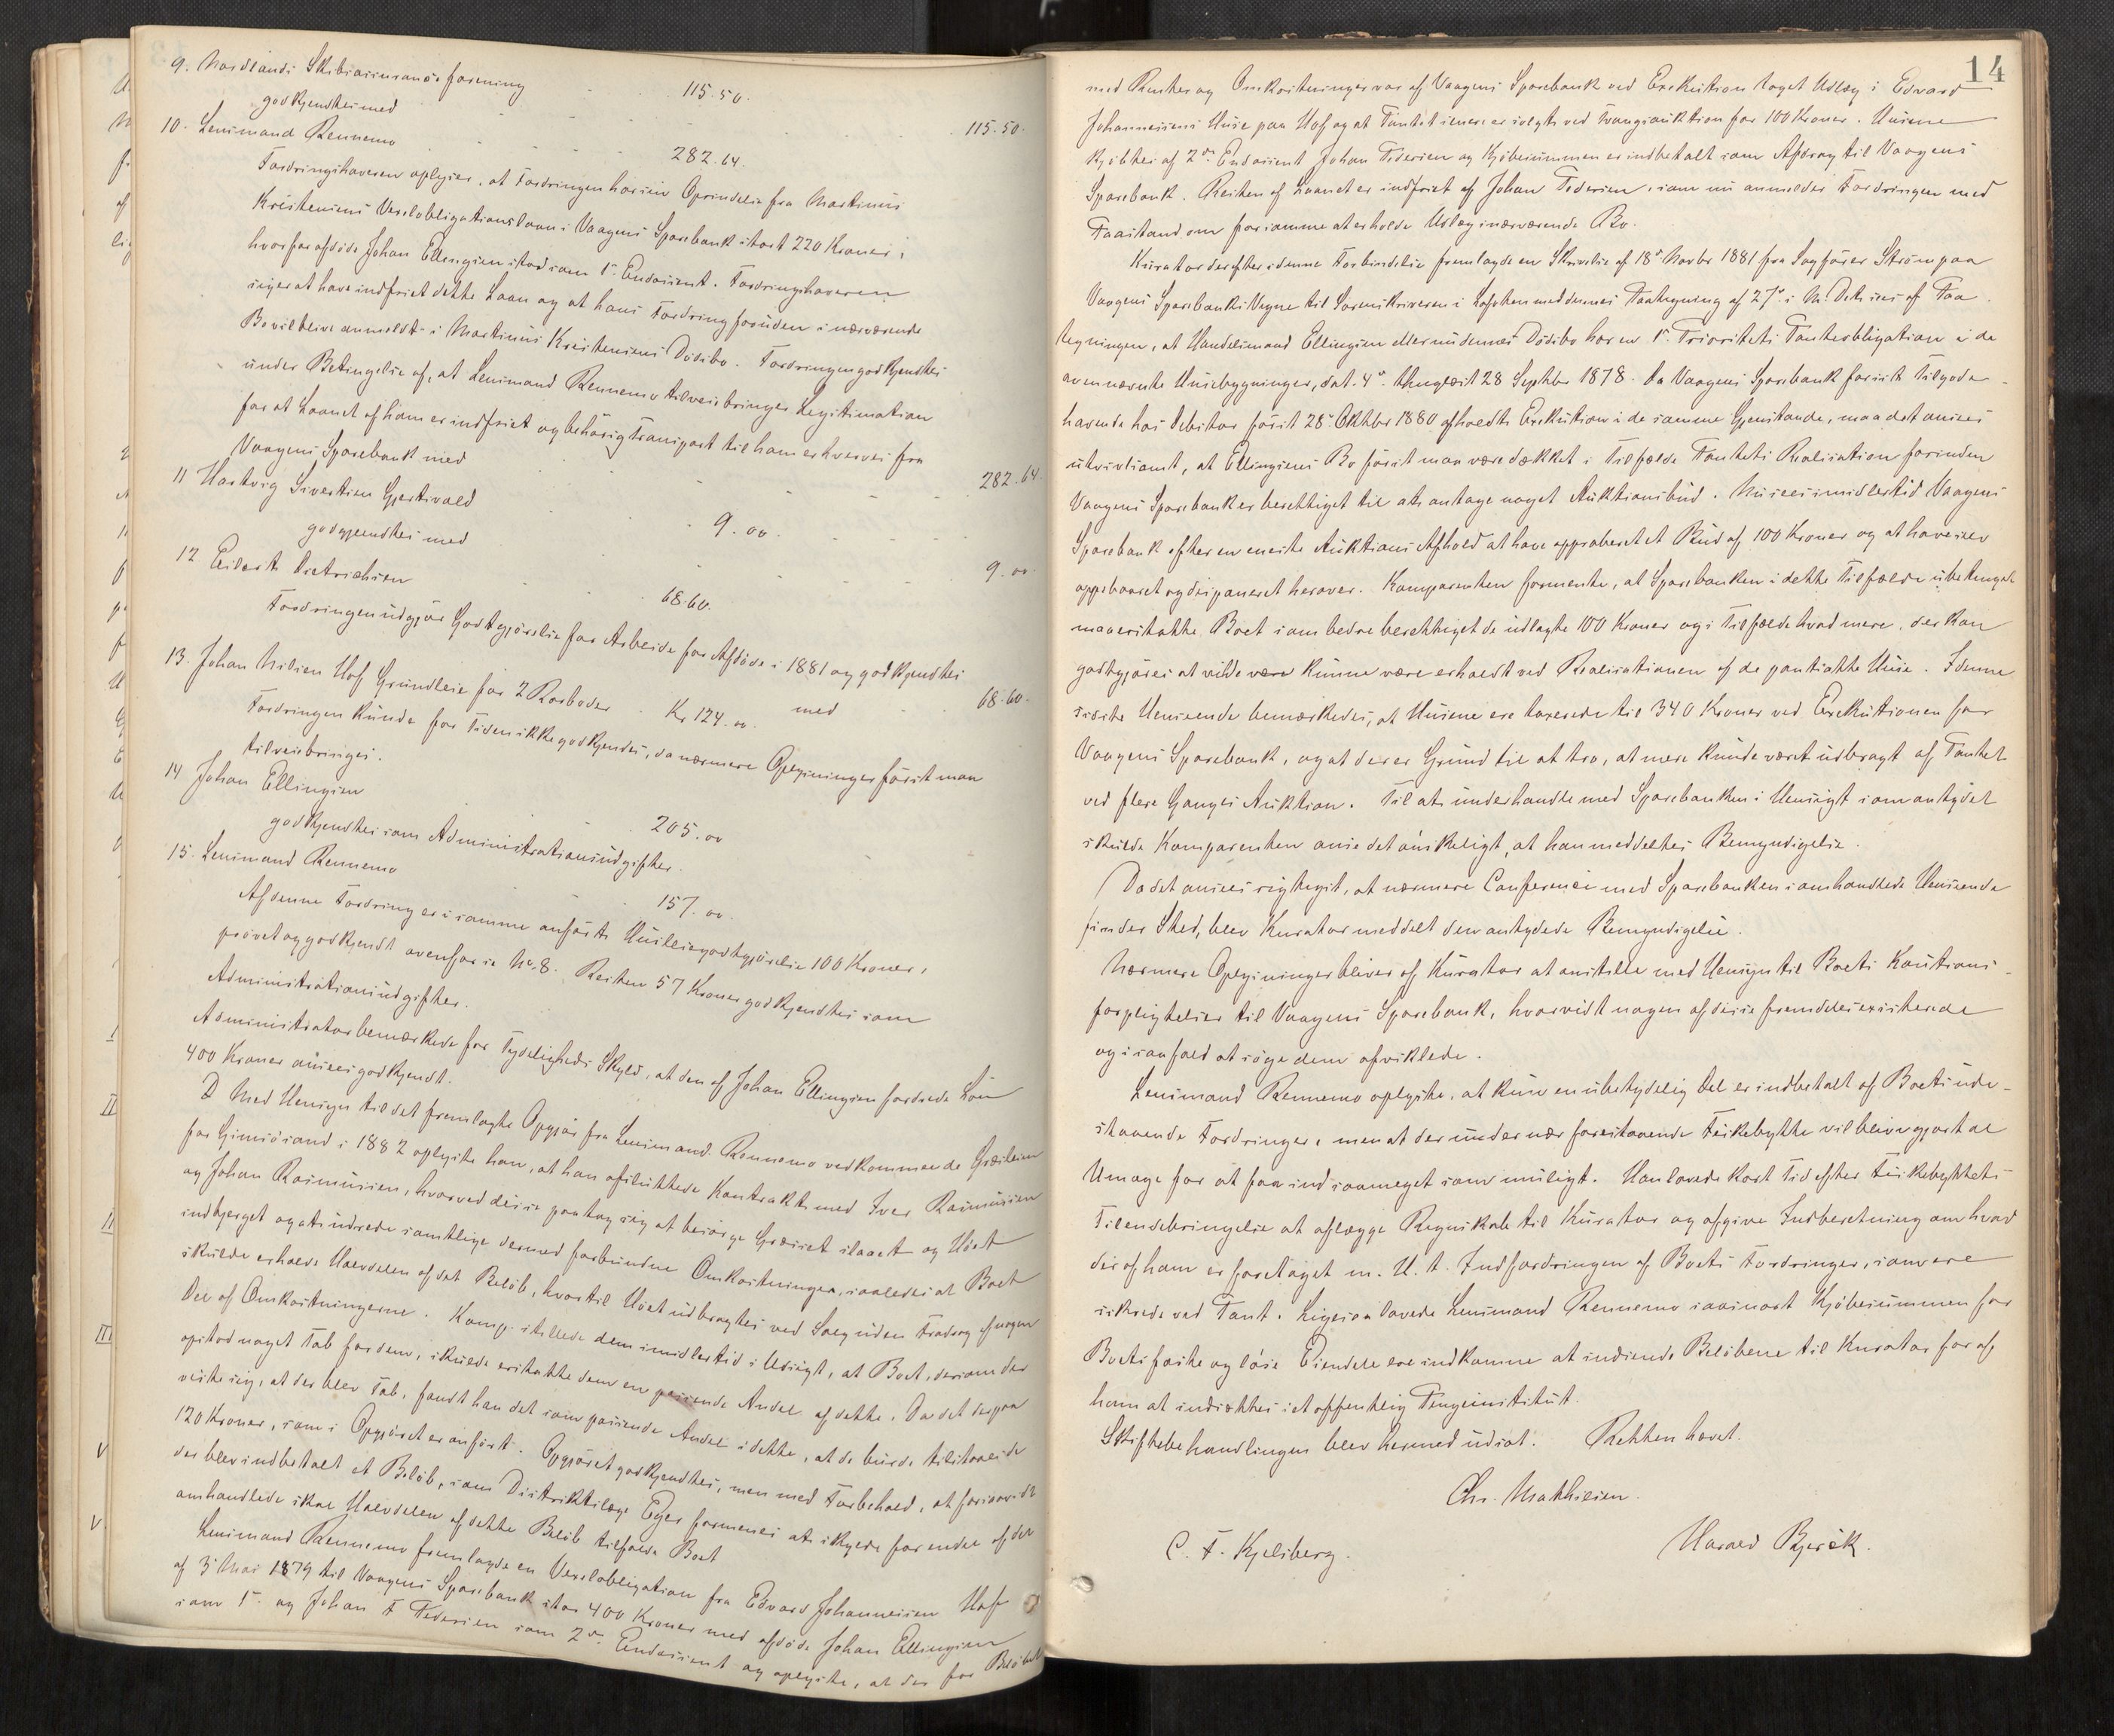 9. Nordlands Skibsassuranceforening 115.50.
godkjendtes med 115.50.
10. Lensmand Rennemo 282.64.
Fordringshaveren oplyser, at Fordringen har sin Oprindelse fra Martinus
Kristensens Vexelobligationslaan i Vaagens Sparebank stort 220 Kroner,
hvorfor afdøde Johan Ellingsen stod som 1ste Endossent. Fordringshaveren
siger at have indfriet dette Laan og at hans Fordring foruden i nærværende
Bo vil blive anmeldt i Martinus Kristensens Dødsbo. Fordringen godkjendtes
under Betingelse af, at Lensmand Rennemo tilveiebringer Legitimation
for at Laanet af ham er indfriet og behørig Transport til ham erhverves fra
Vaagens Sparebank med 282.64.
11 Hartvig Sivertsen Gjerstivold 9.00.
godgjendtes med 9.00.
12 Eilert Dietrichsen 68.60.
Fordringen udgjør Godtgjørelse for Arbeide for Afdøde i 1881 og godkjendtes
med 68.60.
13. Johan Nilsen Hof Grundleie for 2 Rorboder Kr 124.00.
Fordringen kunde for Tiden ikke godkjendes, da nærmere Oplysninger først maa
tilveiebringes.
14 Johan Ellingsen 205.00
godkjendtes som Administrationsudgifter.
15. Lensmand Rennemo 157.00.
Af denne Fordring er i samme anført Husleiegodtgjørelse 100 Kroner,
prøvet og godkjendt ovenfor se No. 8. Resten 57 Kroner godkjendtes som
Administrationsudgifter.
Administrator bemærkede for Tydeligheds Skyld, at den af Johan Ellingsen fordrede Løn
400 Kroner ansees godkjendt.
D Med Hensyn til det fremlagte Opgjør fra Lensmand Rennemo vedkommende Græsleien
for Gimsösand i 1882 oplyste han, at han afsluttede Kontrakt med Iver Rasmussen
og Johan Rasmussen, hvorved disse paatog sig at besørge Græsset slaaet og Høet
indbjerget og at udrede samtlige dermed forbundne Omkostninger, saaledes at Boet
skulde erholde Halvdelen af det Beløb, hvortil Høet udbragtes ved Salg uden Fradrag af nogen
Del af Omkostningerne. Komp. stillede dem imidlertid i Udsigt, at Boet, dersom der
opstod noget Tab for dem, skulde erstatte dem en passende Andel af dette. Da det derpaa
viste sig, at der blev Tab, fandt han det som passende Andel i dette, at de burde tilstaaes de
120 Kroner, som i Opgjøret er anført. Opgjøret godkjendtes, men med Forbehold, at forsaavidt
der blev indbetalt et Beløb, som Distriktslæge Eger formenes at skylde for endel af det
omhandlede skal Halvdelen af dette Beløb tilfalde Boet
Lensmand Rennemo fremlagde en Vexelobligation fra Edvard Johannessen Hof
af 3 Mai 1879 til Vaagens Sparebank stor 400 Kroner med afdøde Johan Ellingsen
som 1ste og Johan F Pedersen som 2den Endossent og oplyste, at der for Beløbet
14
med Renter og Omkostninger var af Vaagens Sparebank ved Exekution taget Udlæg i Edvard
Johannessens Huse paa Hof og at Pantet senere er solgt ved Tvangsauktion for 100 Kroner. Husene
kjøbtes af 2den Endossent Johan Pedersen og Kjøbesummen er indbetalt som Afdrag til Vaagens
Sparebank. Resten af Laanet er indfriet af Johan Pedersen, som nu anmelder Fordringen med
Paastand om for samme at erholde Udlæg i nærværende Bo.
Kurator derefter i denne Forbindelse fremlagde en Skrivelse af 18de Novbr 1881 fra Sagfører Strøm paa
Vaagens Sparebanks Vegne til Sorenskriveren i Lofoten med dennes Paategning af 27de s. M. Det sees af Paa
tegningen, at Handelsmand Ellingsen eller nu dennes Dødsbo har en 1ste Prioritets Panteobligation i de
ovennævnte Husebygninger, dat. 4de thinglæst 28 Septbr 1878. Da Vaagens Sparebank for sit Tilgode-
havende hos Debitor først 28de Oktbr 1880 afholdt Exekution i de samme Gjenstande, maa det ansees
utvivlsomt, at Ellingsens Bo først maa være dækket i Tilfælde Pantets Realisation forinden
Vaagens Sparebank er berettiget til at antage noget Auktionsbud. Nu sees imidlertid Vaagens
Sparebank efter en eneste Auktions Afhold at have approberet et Bud af 100 Kroner og at have selv
oppebaaret og disponeret herover. Komparenten formente, at Sparebanken i dette Tilfælde ubetinget
maa erstatte Boet som bedre berettiget de udlagte 100 Kroner og i Tilfælde hvad mere, der kan
godtgjøres at vilde være kunne være erholdt ved Realisationen af de pantsatte Huse. I denne
sidste Henseende bemærkedes, at Husene ere taxerede til 340 Kroner ved Exekutionen for
Vaagens Sparebank, og at der er Grund til at tro, at mere kunde været udbragt af Pantet
ved flere Ganges Auktion. Til at underhandle med Sparebanken i Hensigt som antydet
skulde Komparenten anse det ønskeligt, at han meddeltes Bemyndigelse.
Da det ansees rigtigst, at nærmere Conferense med Sparebanken i omhandlede Henseende
finder Sted, blev Kurator meddelt den antydede Bemyndigelse.
Nærmere Oplysninger bliver af Kurator at anstille med Hensyn til Boets Kautions-
forpligtelser til Vaagens Sparebank, hvorvidt nogen af disse fremdeles existerede
og i saafald at søge dem afviklede.
Lensmand Rennemo oplyste, at kun en ubetydelig Del er indbetalt af Boets ude-
staaende Fordringer, men at der under nær forestaaende Fiskebytte vil blive gjort al
Umage for at faa ind saameget som muligt. Han lovede kort Tid efter Fiskebyttets
Tilendebringelse at aflægge Regnskab til Kurator og afgive Indberetning om hvad
der af ham er foretaget m. H. t. Indfordringen af Boets Fordringer, som ere
sikrede ved Pant. Ligesaa lovede Lensmand Rennemo saasnart Kjøbesummen for
Boets faste og løse Eiendele ere indkomne at indsende Beløbene til Kurator for af
ham at indsættes i et offentlig Pengeinstitut.
Skiftebehandlingen blev hermed udsat. Retten hævet.
Chr. Mathiesen.
C. F. Kjelsberg. Harald Bjerök.